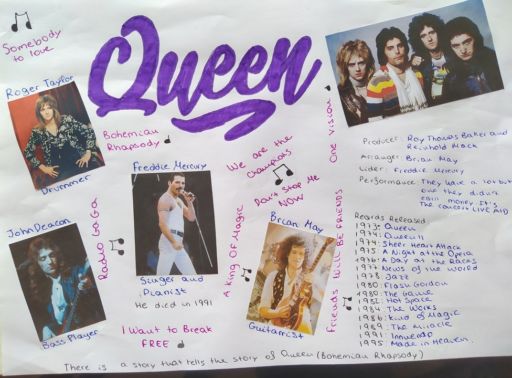 Somebody
to love
Queen
Roger Taylor
Drummer
Bohemian
Rhapsody
Freddie Mercury
Singer and
Pianist
He died in 1991
We are the
Champions
Don't Stop Me
NOW
One vision
Producer: Roy Thomas Baker and
Reinhold Mack
Arranger: Brian May
Lider: Freddie Mercury
Performance: They have a lot but
one they didn't
earn money It's
The concert LIVE AID
John Deacon
Bass Player
Radio Ga Ga
A King Of Magic
Brian May
Guitarrist
Friends Will BE FRIENDS
I Want to Break
FREE
Records Released
1973: Queen
1974: Queen II
1974: Sheer Heart Attack
1975: A Night at the Opera
1976: A Day at the Races
1977: News of the World
1978: Jazz
1980: Flash Gordon
1980: The Game
1982: Hot Space
1984: The Works
1986: Kind of Magic
1989: The Miracle
1991: Innuendo
1995: Made in Heaven
There is a story that tells the story of Queen (Bohemian Rhapsody)